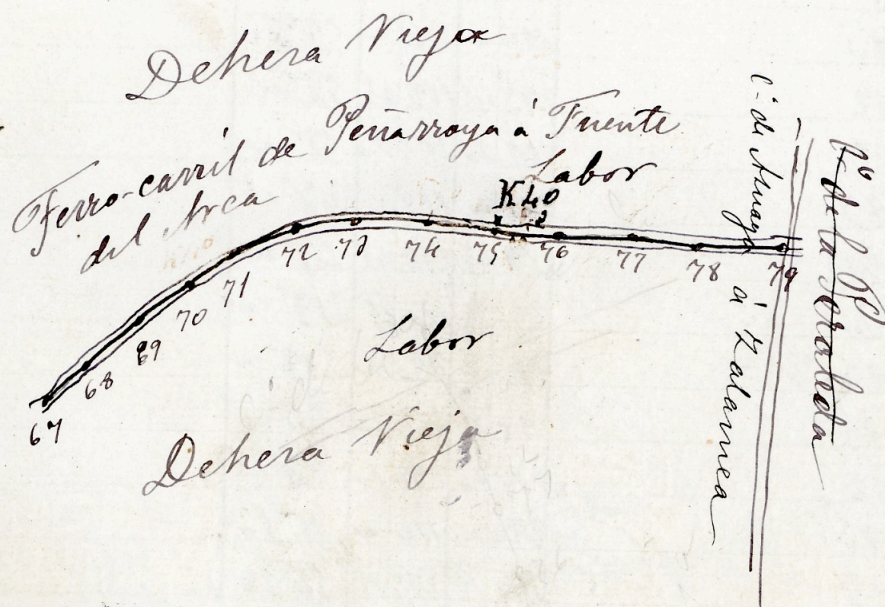 Dehesa Vieja
Ferro-carril de Peñarroya á Fuente
del Arca
Labor
K40
67
68
69
70
71
72
73
74
75
76
77
78
79
Labor
Dehesa Vieja
Cº de Azuaga á Zalamea
de la